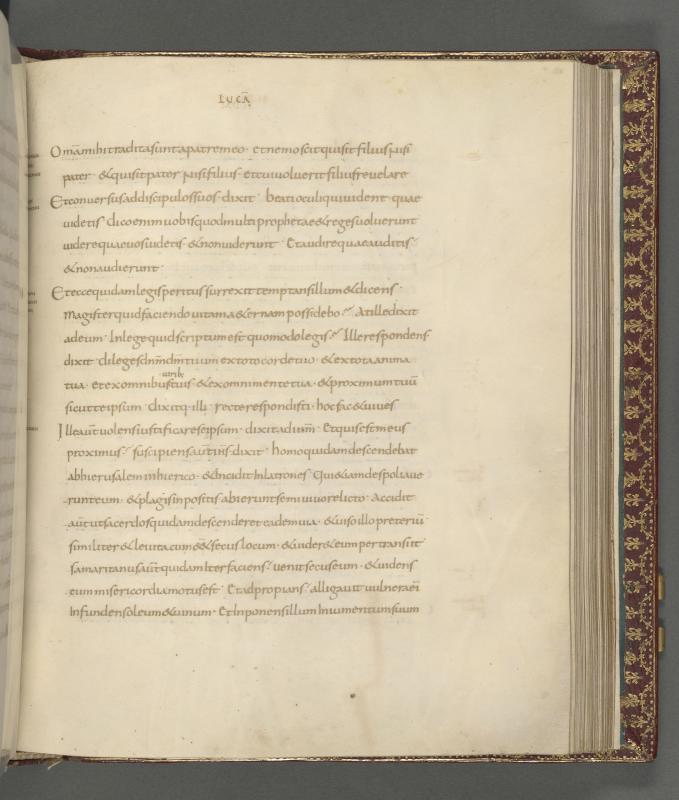 LUCĀ
Omīa mihi tradita sunt a patre meo · et nemo scit qui sit filius nisi
pater · & qui sit pater nisi filius · et cui voluerit filius revelare
Et conversus ad discipulos suos · dixit · beati oculi qui vident quae
videtis · dico enim vobis quod multi prophetae & reges voluerunt
videre quae vos videtis · & non viderunt · Et audire quae auditis ·
& non audierunt ·
Et ecce quidam legis peritus surrexit temptans illum & dicens ·
magister quid faciendo vitam a&ernam possidebo? At ille dixit
ad eum · In lege quid scriptum est quomodo legis? Ille respondens
dixit · diliges dn̄m dm̄ tuum ex toto corde tuo · & ex tota anima
virib;
tua · et ex omnibus tuis · & ex omni mente tua · & proximum tuū
sicut te ipsum · dixitq· illi · recte respondisti · hoc fac & vives
Ille aut̄ volens iustificare se ipsum · dixit ad ih̄m · Et quis est meus
proximus? suscipiens aut̄ ih̄s dixit · homo quidam descendebat
ab hierusalem in hierico · & incidit in latrones · Qui &iam despoliave
runt eum · & plagis inpositis abierunt semivivo relicto · Accidit
aut̄ ut sacerdos quidam descenderet eadem via · & viso illo preteriit
similiter & levita cum ēē& secus locum · & vider& eum pertransiit
samaritanus aut̄ quidam iter faciens · venit secus eum · & videns
eum misericordia motus est · Et adpropians · alligavit vulnera ei
Infundens oleum & vinum · Et inponens illum in iumentum suum